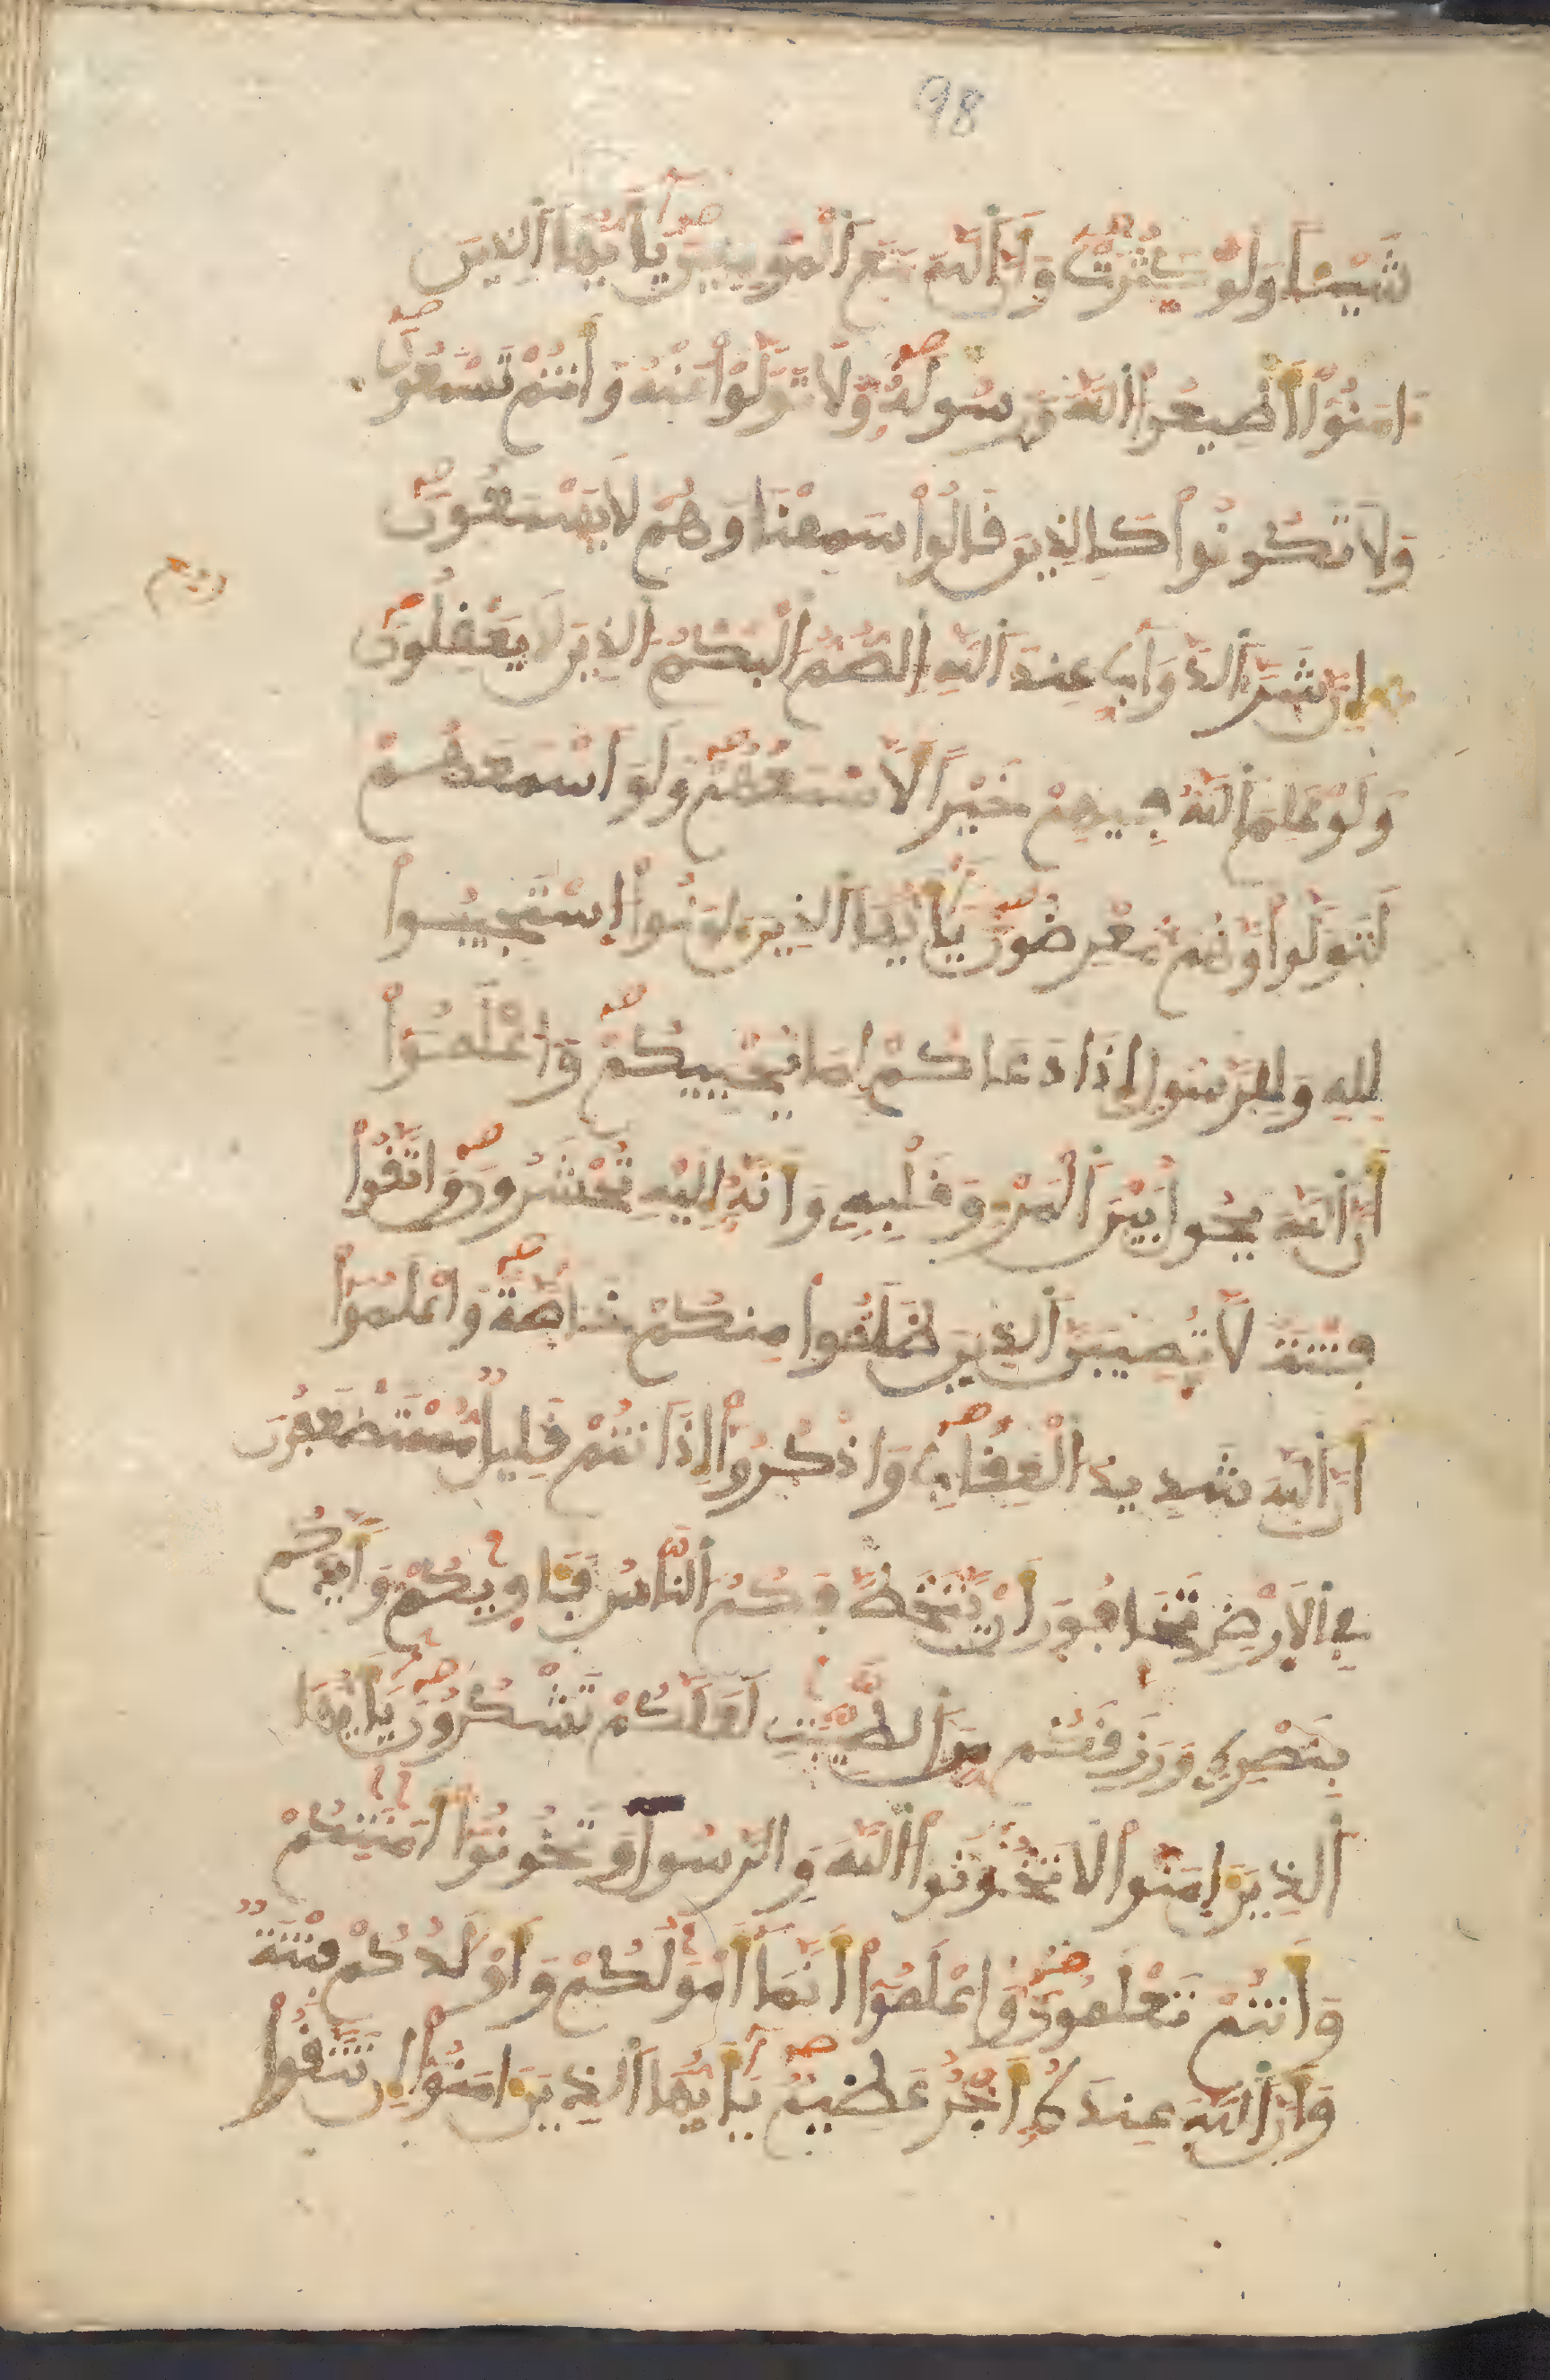 98
شَيْـًٔا وَلَوْ كَثُرَتْ وَأَنَّ اَللَّهَ مَعَ اَلْمُومِنِينَ يَٰأَيُّهَا اَلذِينَ
ءَامَنُوٓاْ أَطِيعُواْ اُللَّهَ وَرَسُولَهُۥ وَلَا تَوَلَّوْاْ عَنْهُ وَأَنتُمْ تَسْمَعُونَ
وَلَا تَكُونُواْ كَالذِينَ قَالُواْ سَمِعْنَا وَهُمْ لَا يَسْمَعُونَ
إِنَّ شَرَّ اَلدَّوَآبِّ عِندَ اَللَّهِ اِلصُّمُّ اُلْبُكْمُ اُلذِينَ لَا يَعْقِلُونَ
وَلَوْ عَلِمَ اَللَّهُ فِيهِمْ خَيْراً لَّأَسْمَعَهُمْ وَلَوَ اَسْمَعَهُمْ
لَتَوَلَّواْ وَّهُم مُّعْرِضُونَ يَٰأَيُّهَا اَلذِينَ ءَامَنُواْ اُسْتَجِيبُواْ
لِلهِ وَلِلرَّسُولِ إِذَا دَعَاكُمْ لِمَا يُحْيِيكُمْ وَاعْلَمُوٓاْ
أَنَّ اَللَّهَ يَحُولُ بَيْنَ اَلْمَرْءِ وَقَلْبِهِۦ وَأَنَّهُۥٓ إِلَيْهِ تُحْشَرُونَ وَاتَّقُواْ
فِتْنَةً لَّا تُصِيبَنَّ اَلذِينَ ظَلَمُواْ مِنكُمْ خَآصَّةً وَاعْلَمُوٓاْ
أَنَّ اَللَّهَ شَدِيدُ اُلْعِقَابِ وَاذْكُرُوٓاْ إِذَ اَنتُمْ قَلِيلٌ مُّسْتَضْعَفُونَ
فِي اِلَارْضِ تَخَافُونَ أَنْ يَّتَخَطَّفَكُمُ اُلنَّاسُ فَـَٔاوِيٰكُمْ وَأَيَّدَكُم
بِنَصْرِهِۦ وَرَزَقَكُم مِّنَ اَلطَّيِّبَٰتِ لَعَلَّكُمْ تَشْكُرُونَ يَٰأَيُّهَا
اَلذِينَ ءَامَنُواْ لَا تَخُونُواْ اُللَّهَ وَالرَّسُولَ وَتَخُونُوٓاْ أَمَٰنَٰتِكُمْ
وَأَنتُمْ تَعْلَمُونَ وَاعْلَمُوٓاْ أَنَّمَآ أَمْوَٰلُكُمْ وَأَوْلَٰدُكُمْ فِتْنَةٌ
وَأَنَّ اَللَّهَ عِندَهُۥٓ أَجْرٌ عَظِيمٌ يَٰأَيُّهَا اَلذِينَ ءَامَنُوٓاْ إِن تَتَّقُواْ